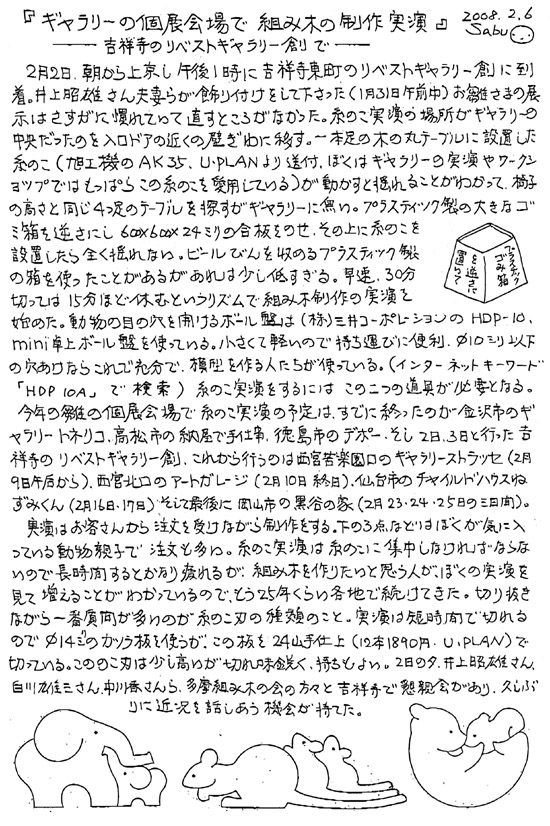 『ギャラリーの個展会場で 組み木の制作実演』
2008.2.6
Sabu
――吉祥寺のリベストギャラリー創で――
2月2日、朝から上京し午後1時に吉祥寺東町のリベストギャラリー創に到
着。井上昭雄さん夫妻らが飾り付けをして下さった(1月31日午前中)お雛さまの展
示はさすがに慣れていて直すところがなかった。糸のこ実演の場所がギャラリーの
中央だったのを入口ドアの近くの壁ぎわに移す。一本足の木の丸テーブルに設置した
糸のこ(旭工機のAK35、U・PLANより送付、ぼくはギャラリーの実演やワークシ
ョップではもっぱらこの糸のこを愛用している)が動かすと揺れることがわかって、椅子
の高さと同じ4つ足のテーブルを探すがギャラリーに無い。プラスティック製の大きなゴ
ミ箱を逆さにし600×600×24ミリの合板をのせ、その上に糸のこを
設置したら全く揺れない。ビールびんを収めるプラスティック製
の箱を使ったことがあるがあれは少し低すぎる。早速、30分
切っては15分ほど休むというリズムで組み木制作の実演を
始めた。動物の目の穴を開けるボール盤は(株)三井コーポレションのHDP-10、
mini卓上ボール盤を使っている。小さくて軽いので持ち運びに便利、Ø10ミリ以下
の穴あけならこれで充分で、模型を作る人たちが使っている。(インターネットキーワード
「HDP 10A」で検索) 糸のこ実演をするにはこの二つの道具が必要となる。
プラスティックごみ箱
を逆さに置いて
今年の雛の個展会場で糸のこ実演の予定は、すでに終ったのが金沢市のギ
ャラリートネリコ、高松市の納屋で手仕事、徳島市のデポー、そし2日、3日と行った吉
祥寺のリベストギャラリー創、これから行うのは西宮苦楽園口のギャラリーストラッセ(2月
9日午后から)、西宮北口のアートガレージ(2月10日終日)、仙台市のチャイルドハウスね
ずみくん(2月16日・17日)そして最後に岡山市の黒谷の家(2月23・24・25日の三日間)。
実演はお客さんから注文を受けながら制作をする。下の3点などはぼくが気に入
っている動物親子で注文も多い。糸のこ実演は糸のこに集中しなければならな
いので長時間するとかなり疲れるが、組み木を作りたいと思う人が、ぼくの実演を
見て増えることがわかっているので、もう25年くらい各地で続けてきた。切り抜き
ながら一番質問が多いのが糸のこの刃の種類のこと。実演は短時間で切れる
のでØ14ミリのカツラ板を使うが、この板を24山手仕上(12本1890円・U・PLAN)で
切っている。こののこ刃は少し高いが切れ味鋭く、持ちもよい。2日の夕、井上昭雄さん、
白川雄三さん、中川香さんら、多摩組み木の会の方々と吉祥寺で懇親会があり、久しぶ
りに近況を話しあう機会が持てた。